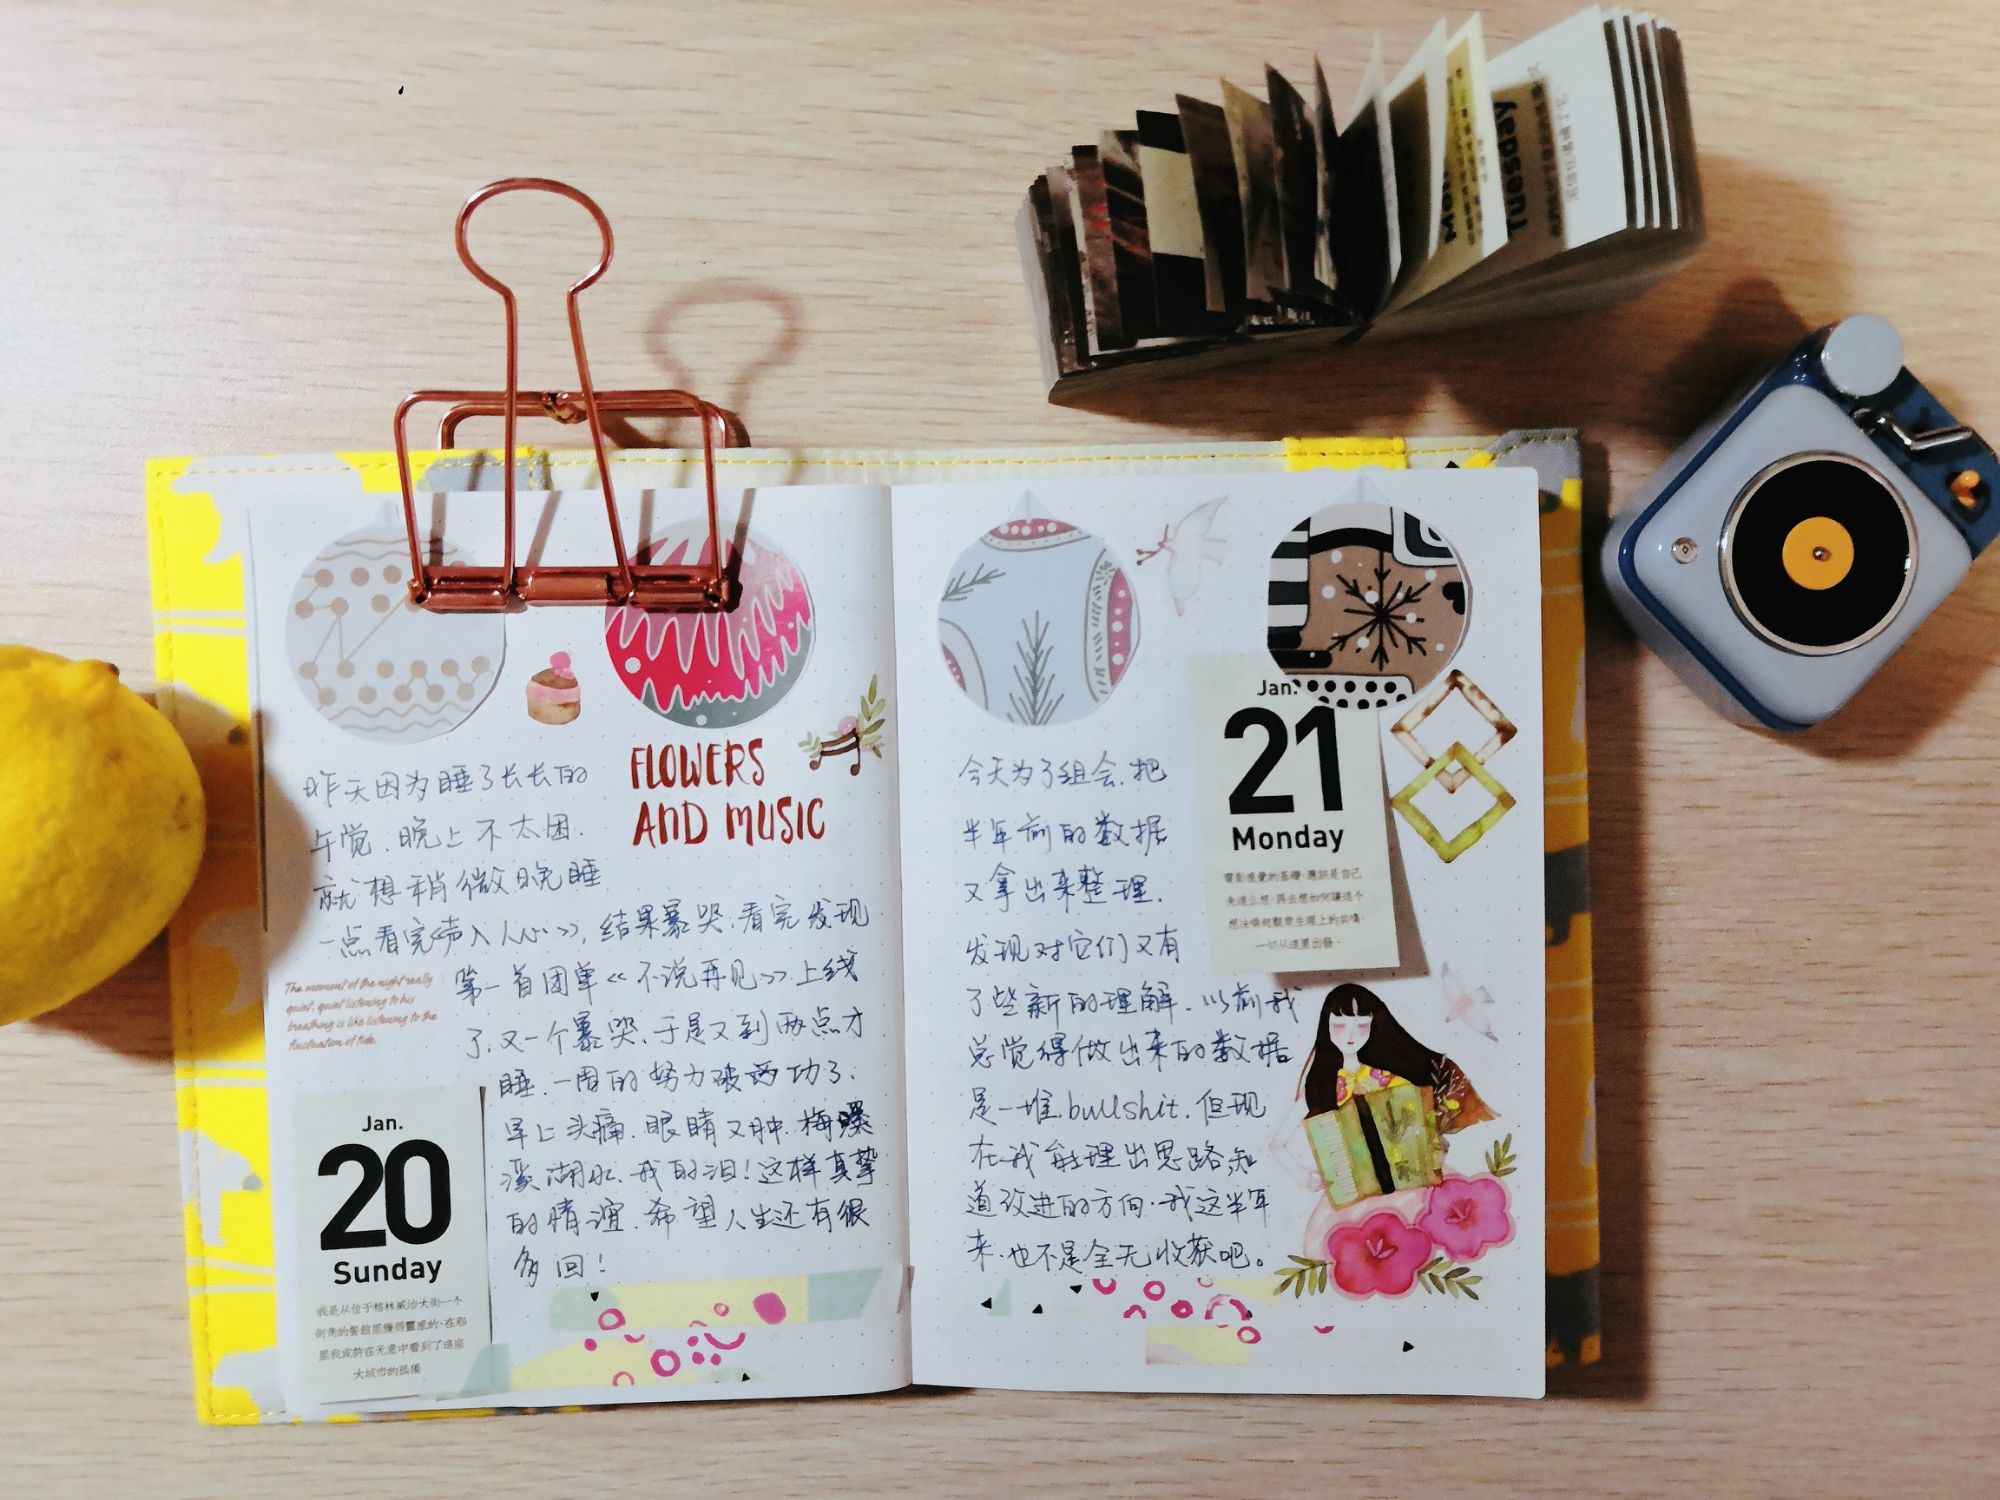 Tuesday
FLOWERS
AND MUSIC
昨天因为睡了长长的
午觉.晚上不太困.
就想稍微晚睡
一点看完《声入人心》,结果暴哭.看完发现
第一首团单《不说再见》上线
了.又一个暴哭.于是又到两点才
睡.一周的努力破两功了.
早上头痛.眼睛又肿.梅
溪湖水.我的泪!这样真挚
的情谊.希望人生还有很
多回!
The moment of the night really
quiet, quiet listening to his
breathing is like listening to the
fluctuation of tide.
Jan.
20
Sunday
我是从位于格林威治大街一个
街角的餐館里獲得靈感的·在那
里我或許在无意中看到了這座
大城市的孤獨
今天为了组会.把
半年前的数据
又拿出来整理.
发现对它们又有
了些新的理解.以前我
总觉得做出来的数据
是一堆bullshit.但现
在我能理出思路,知
道改进的方向.我这半年
来.也不是全无收获吧。
Jan.
21
Monday
電影感覺的基礎·應該是自己
先這么想·再去想如何讓這个
想法喚起觀眾生理上的共鳴·
一切从這里出發·